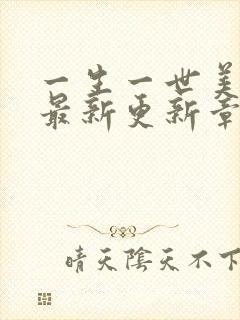 一生一世美
最新更新章
晴天陰天不下